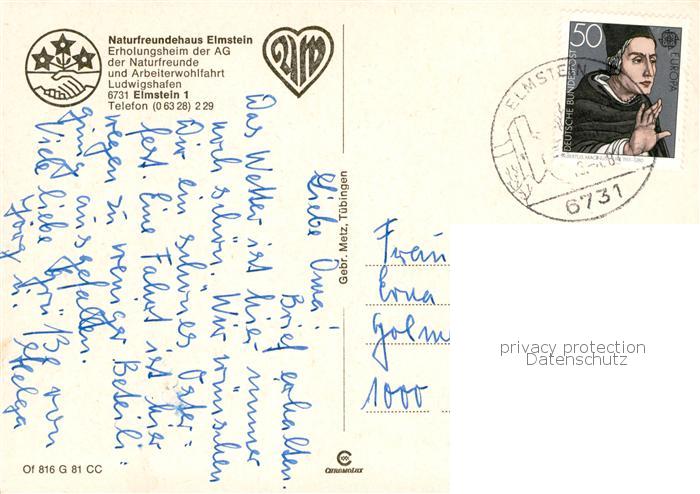 Naturfreundehaus Elmstein
Erholungsheim der AG
der Naturfreunde
und Arbeiterwohlfahrt
Ludwigshafen
6731 Elmstein 1
Telefon (0 63 28) 2 29
Liebe Oma!
Brief erhalten.
Das Wetter ist hier immer
noch schön. Wir wünschen
Dir ein schönes Oster-
fest. Eine Fahrt ist hier
wegen zu weniger Beteili-
gung ausgefallen.
Viele liebe Grüße von
Jörg u. Helga
Gebr. Metz, Tübingen
Frau
Erna
1000
50
DEUTSCHE BUNDESPOST
EUROPA
ELMSTEIN
6731
privacy protection
Datenschutz
Of 816 G 81 CC
CHROMOLUX